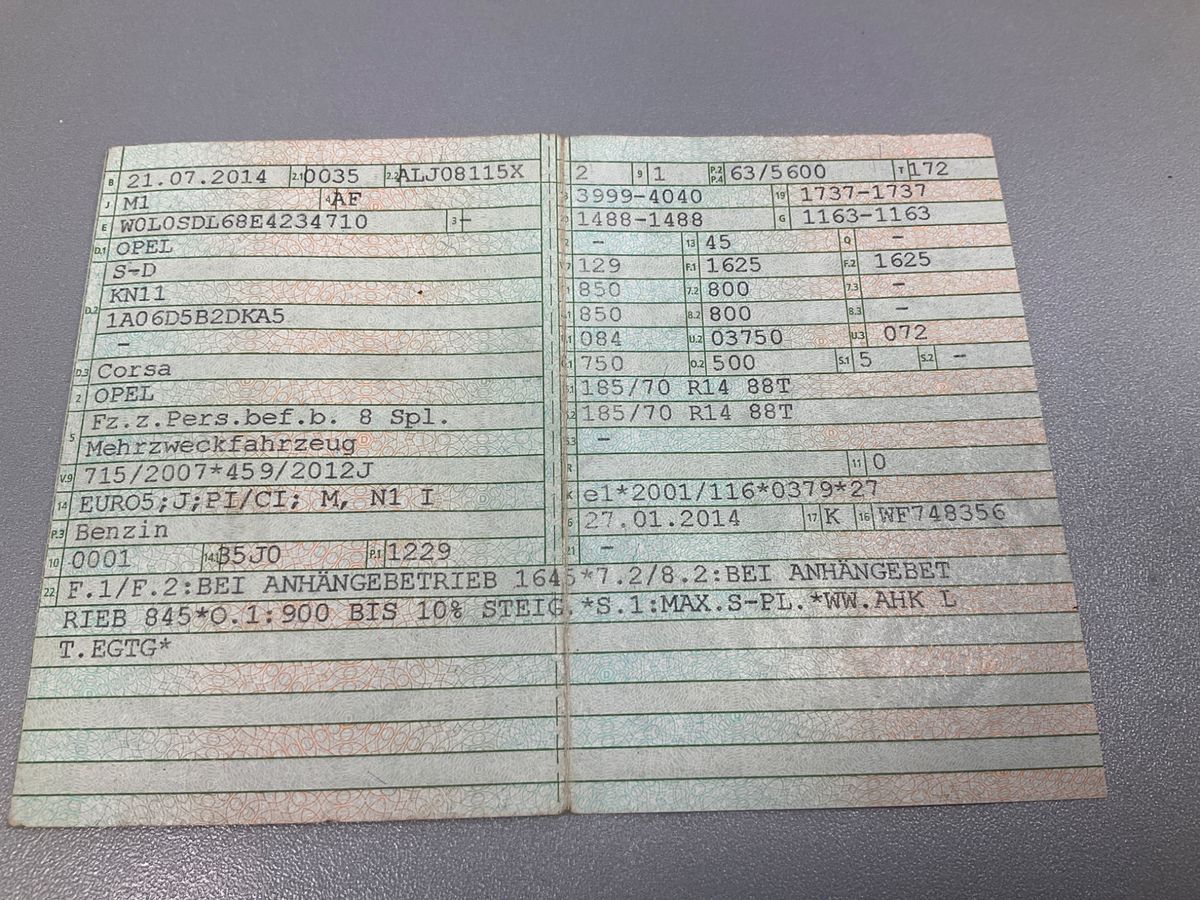 B 21.07.2014 2.1 0035 2.2 ALJ08115X
J M1 4 AF
E W0L0SDL68E4234710 3 -
D.1 OPEL
S-D
D.2 KN11
1A06D5B2DKA5
-
D.3 Corsa
2 OPEL
5 Fz.z.Pers.bef.b. 8 Spl.
Mehrzweckfahrzeug
V.9 715/2007*459/2012J
14 EURO5;J;PI/CI; M, N1 I
P.3 Benzin
10 0001 14.1 35J0 P.1 1229
2 9 1 P.2 P.4 63/5600 T 172
3999-4040 19 1737-1737
1488-1488 G 1163-1163
- 13 45 Q -
129 F.1 1625 F.2 1625
850 7.2 800 7.3 -
850 8.2 800 8.3 -
084 U.2 03750 U.3 072
750 O.2 500 S.1 5 S.2 -
185/70 R14 88T
185/70 R14 88T
-
R 11 0
K e1*2001/116*0379*27
6 27.01.2014 17 K 16 WF748356
21 -
22 F.1/F.2:BEI ANHÄNGEBETRIEB 1645*7.2/8.2:BEI ANHÄNGEBET
RIEB 845*O.1:900 BIS 10% STEIG.*S.1:MAX.S-PL.*WW.AHK L
T.EGTG*